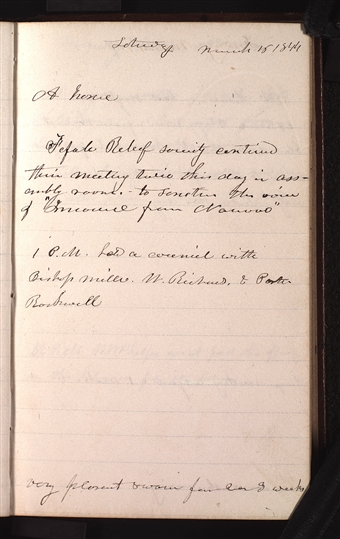 Saturday March 16 1844
At home
Female Relief society continued
their meeting twice this day in ass-
embly room. to sanction the voice
of "Innocence from Nauvoo"
1 P.M. had a council with
Bishop Miller. W. Richards, & Porter
Rockwell
very pleasant & warm for 2 or 3 weeks